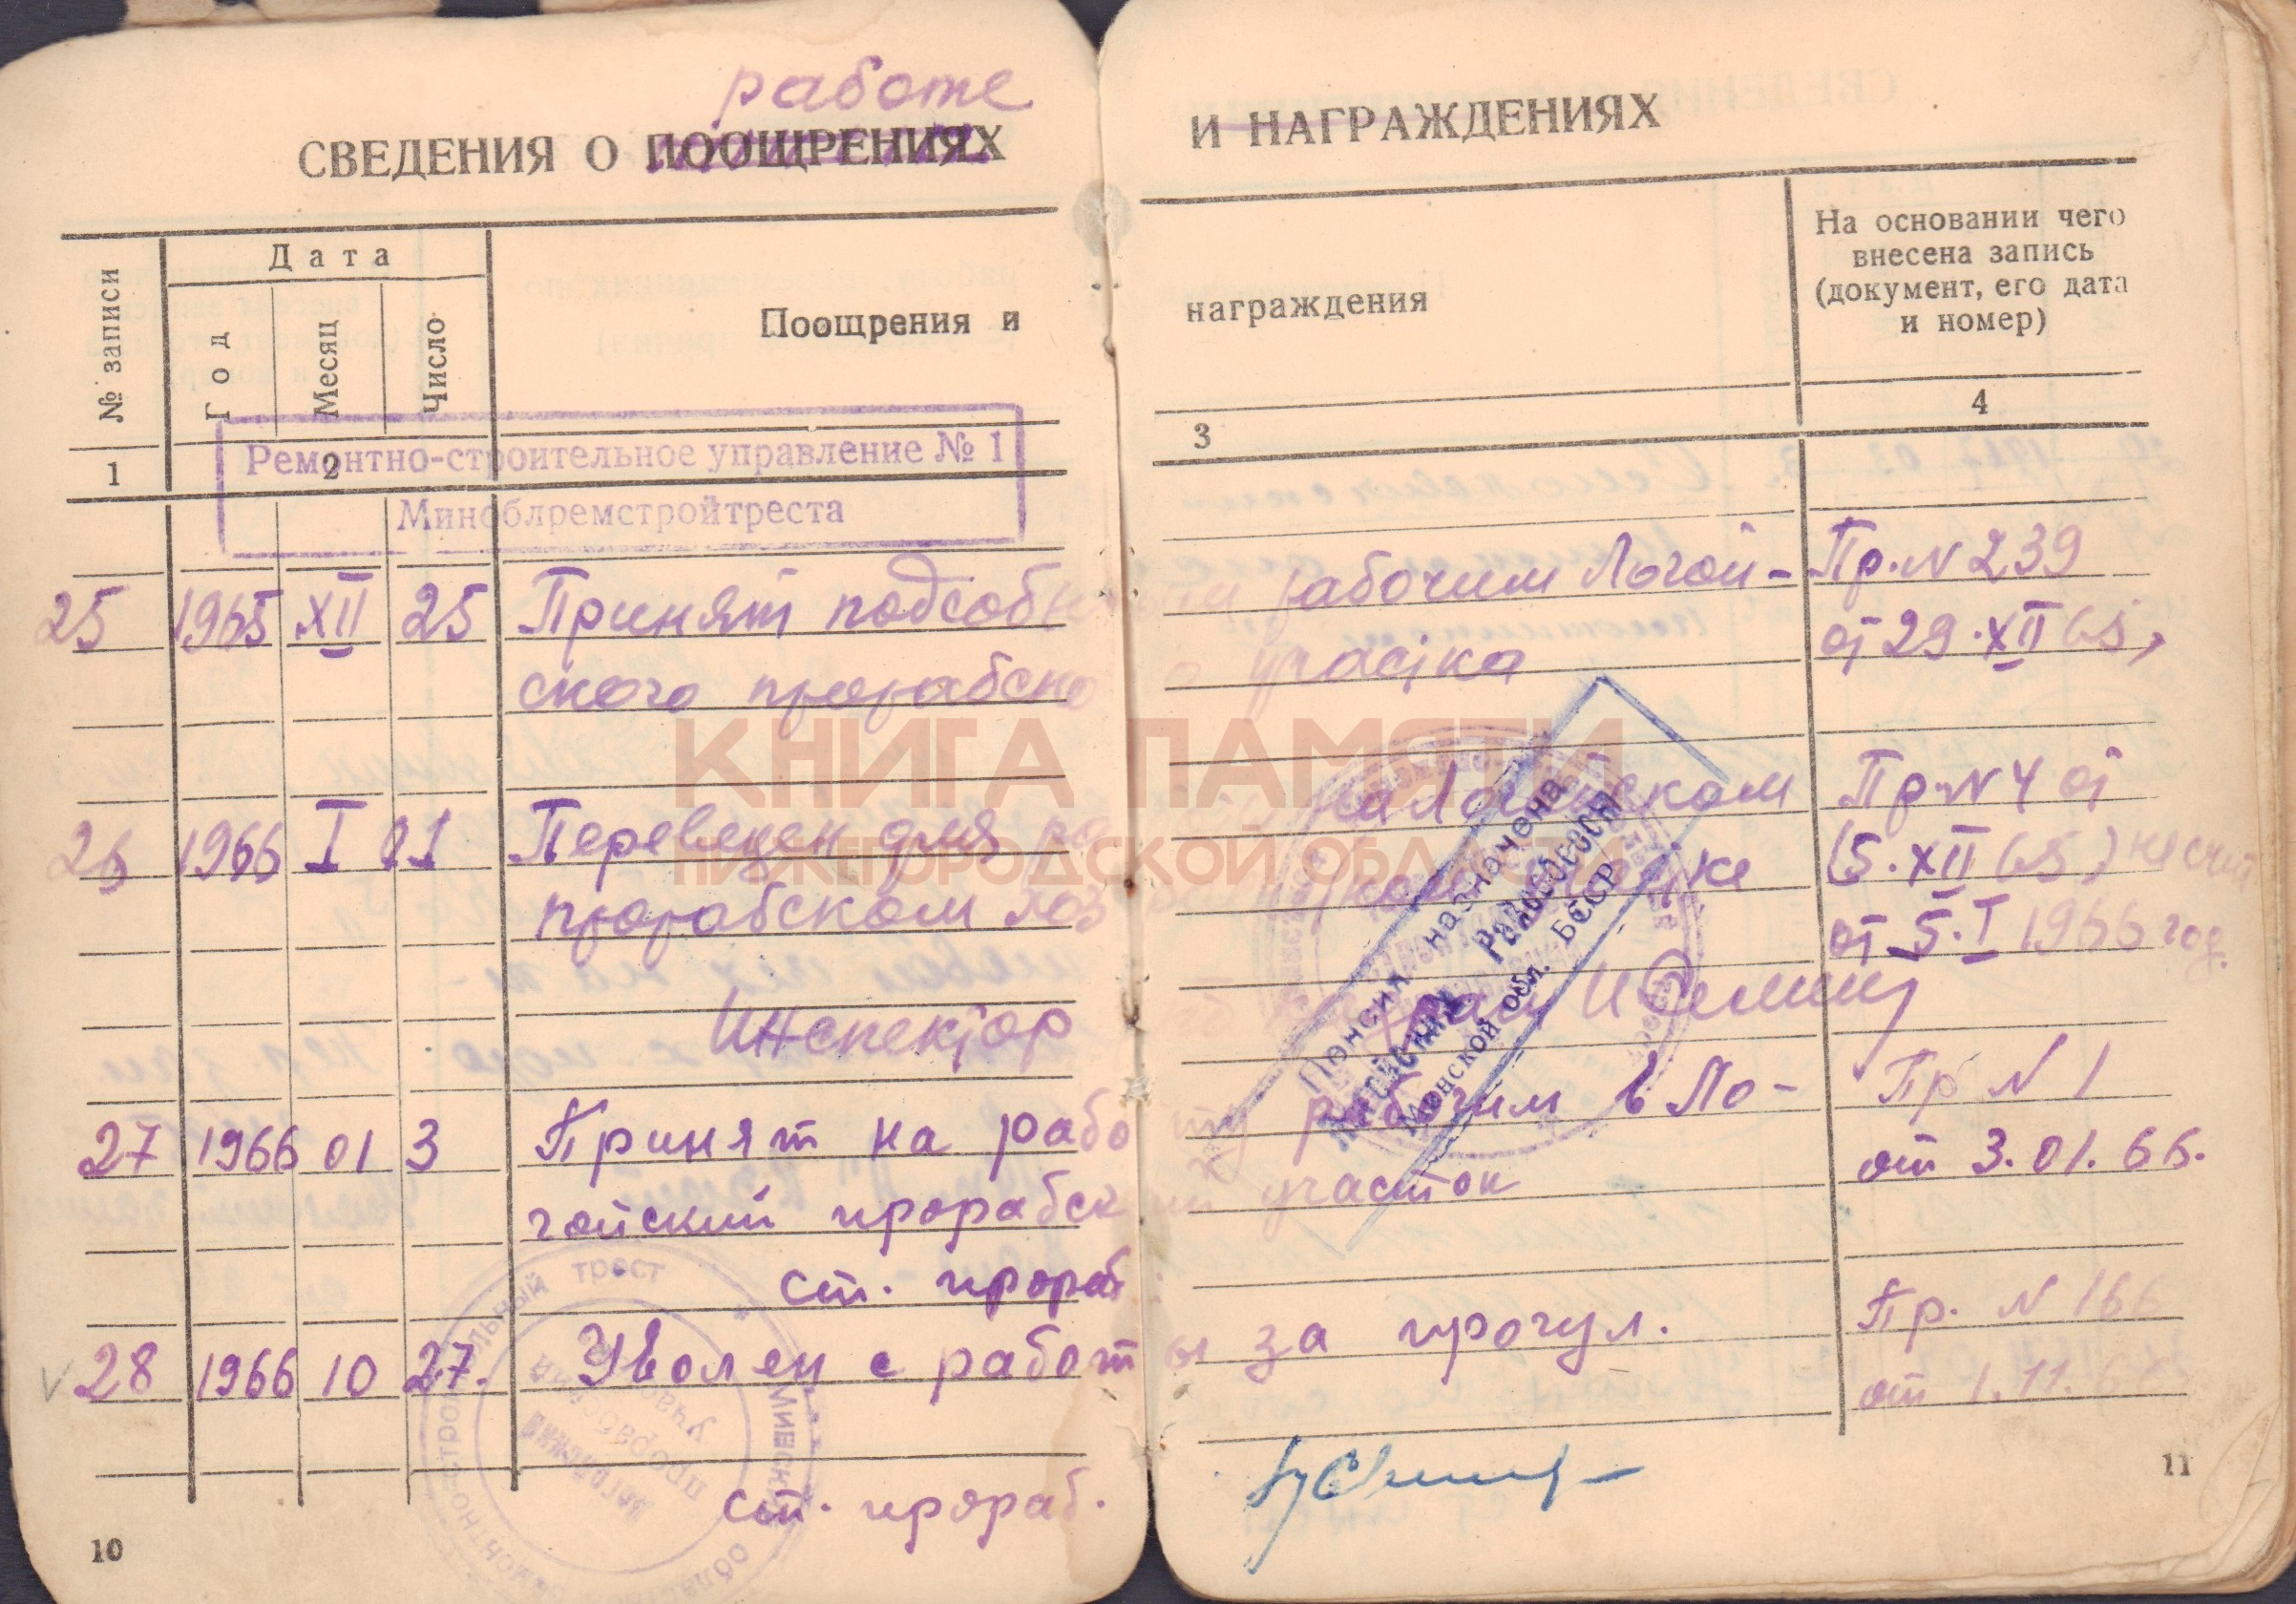 работе
СВЕДЕНИЯ О ПООЩРЕНИЯХ
№ записи
Дата
Год
Месяц
Число
Поощрения и
1
2
Ремонтно-строительное управление № 1
Миноблремстройтреста
25 1965 XII 25 Принят подсобн
ского прорабско
26 1966 I 01 Переведен для
прорабском
Инспектор
27 1966 01 3 Принят на рабо
гойский прорабск
ст. прораб
28 1966 10 27. Уволен с работ
ст. прораб.
трест
Логойский
прорабский
участок
10
И НАГРАЖДЕНИЯХ
награждения
На основании чего
внесена запись
(документ, его дата
и номер)
3
4
рабочим Логой-
участка
Пр. N 239
от 29. XII 65,
на Логойском
Пр. N 4 от
(5. XII 65)
от 5. I 1966 год.
ту рабочим в Ло-
ий участок
Пр N 1
от 3. 01. 66.
ы за прогул.
Пр. N 166
от 1. 11. 66
Пенсия назначена
Логойским Райсобесом
Минской обл. БССР
11
КНИГА ПАМЯТИ
НИЖЕГОРОДСКОЙ ОБЛАСТИ